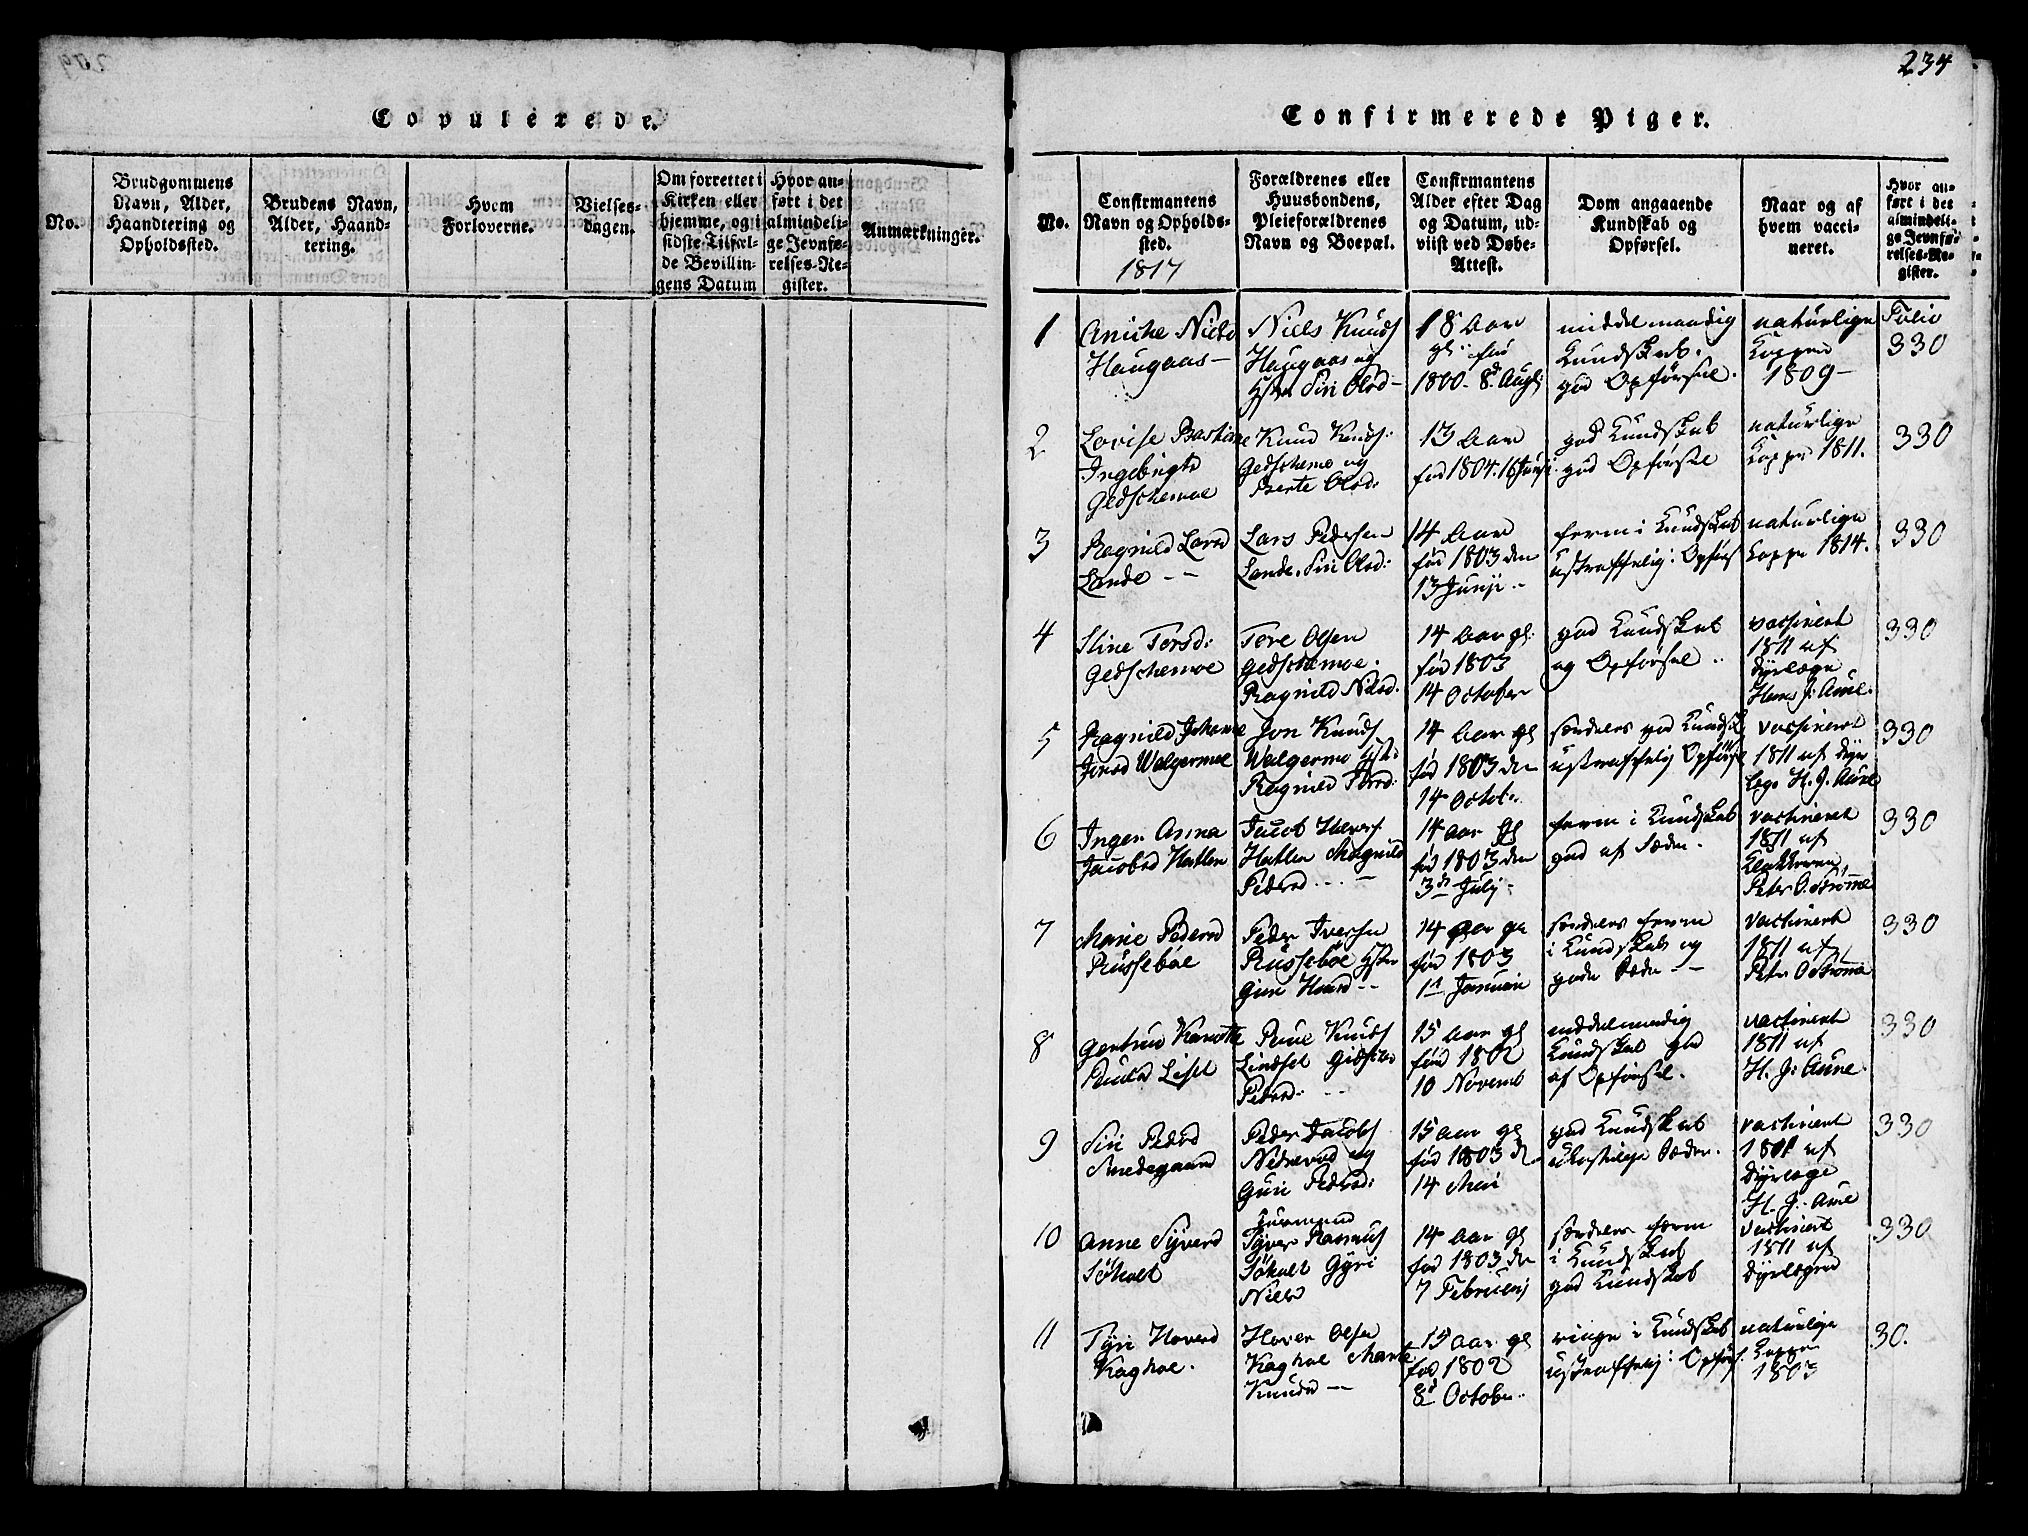 Copulerede.
No.
Brudgommens
Navn, Alder,
Haandtering og
Opholdssted.
Brudens Navn,
Alder, Haand-
tering.
Hvem
Forloverne.
Vielses-
dagen.
Om forrettet i
Kirken eller
hjemme, og i
sidste Tilfæl-
de Bevillin-
gens Datum
Hvor an-
ført i det
almindeli-
ge Jevnfø-
relses-Re-
gister.
Anmærkninger.
234
Confirmerede Piger.
No.
Confirmantens
Navn og Opholds-
sted.
1817
Forældrenes eller
Huusbondens,
Pleieforældrenes
Navn og Boepæl.
Confirmantens
Alder efter Dag
og Datum, ud-
viist ved Døbe-
Attest.
Dom angaaende
Kundskab og
Opførsel.
Naar og af
hvem vacci-
neret.
Hvor an-
ført i det
almindeli-
ge Jevnfø-
relses-Re-
gister.
1
Haugaas
Niels Knuds
Haugaas og
Siri Olsd
18 Aar
gl. fød
1800 8d Augti
middelmaadig
Kundskab.
god Opførsel.
naturlige
Kopper
1809
Folio
330
2
Lovise Bastine
Ingebrigte
Gedschemoe
Knud Knuds:
Gedschemo og
Berte Olsd:
13 Aar
fød 1804. 16 Junji
god Kundskab
god Opførsel
naturlige
Kopper 1811.
330
3
Ragnild Larsd
Lande
Lars Pedersen
Lande. Siri Olsd:
14 Aar
fød 1803 den
13 Junji
ferm i Kundskab
ustraffelig i Opførs
naturlige
Kopper 1814.
330
4
Stine Torsd:
Gedschemoe
Tore Olsen
Gedschemoe.
Ragnild Nilsd.
14 Aar gl.
fød 1803
14 October
god Kundskab
og Opførsel
vacsineret
1811 af
Dyrlæge
Hans J: Aure.
330
5
Ragnild Johanne
Jonsd Walgermoe
Jon Knuds
Walgermo
Ragnild Torsd:
14 Aar gl
fød 1803 den
14 Octob.
særdeles god Kundsk
ustraffelig Opførsel
vacsineret
1811 af Dyr
læge H. J. Aure
330
6
Inger Anna
Jacobsd Hatlen
Jacob
Hatlen Magnild
Pedersd
14 Aar gl
fød 1803 den
3d Julj
ferm i Kundskab
god af Sæder.
vacsineret
1811 af
Klokkeren
Peter O. Strømme
330
7
Marie Pedersd
Russeboe
Peder Iversen
Russeboe
Guri
14 Aar gl
fød 1803
1d Januari
særdeles ferm
i Kundskab og
gode Sæder
vacsineret
1811 af
Peter O Strømme
330
8
Gertrud
Lisel
Knuds
Pedersd:
15 Aar gl
fød 1802
10 Novemb
middelmadig
Kundskab god
af Opførsel.
vacsineret
1811 af
H. J: Aure.
330
9
Siri Pedsd
Smedegaard
Peder Jacobs
og
Guri Pedersd:
15 Aar gl
fød 1803 d.
14 Mai
god Kundskab
Sæder.
vacsineret
1811 af
Dyrlæge
H. J: Aure
330
10
Anne Syversd
Søholt
Syver Rasmus
Søholt Gyri
Nielsd
14 Aar gl
fød 1803 den
7 Februarj
særdeles ferm
i Kundskab
god Kundskab
vacsineret
1811 af
Dyrlægen
330
11
Gyri Haversd
Kaghoe.
Haver Olsen
Kaghoe Marte
Knudsd
15 Aar gl
fød 1802
8d October
ringe i Kundskab
ustraffelig i Opførs.
naturlige
Kopper
1803
30.